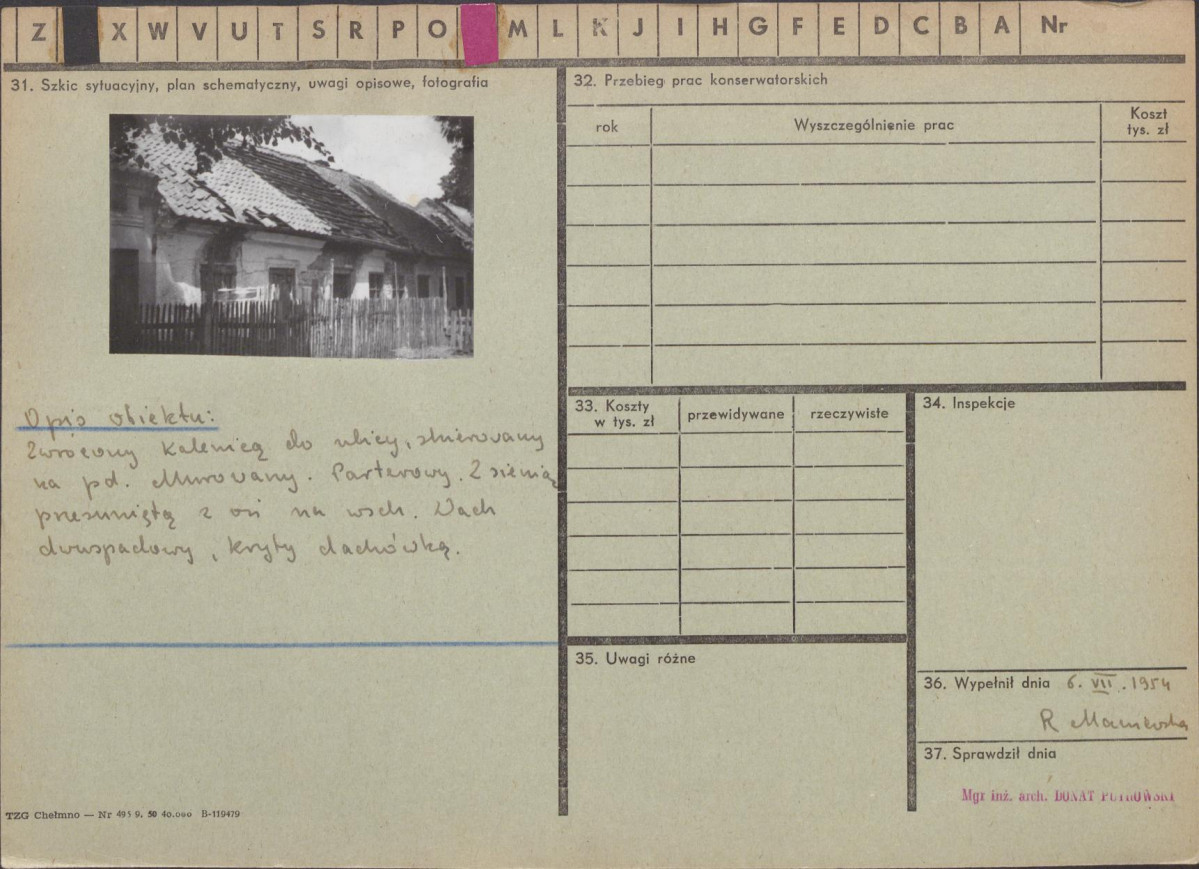 Z X W V U T S R P O M L K J I H G F E D C B A Nr
31. Szkic sytuacyjny, plan schematyczny, uwagi opisowe, fotografia
Opis obiektu:
Zwrócony kalenicą do ulicy, skierowany
na pd. Murowany. Parterowy. Z sienią
przesuniętą z osi na wsch. Dach
dwuspadowy, kryty dachówką.
TZG Chełmno — Nr 495 9. 50 40.000 B-119479
32. Przebieg prac konserwatorskich
rok
Wyszczególnienie prac
Koszt
tys. zł
33. Koszty
w tys. zł
przewidywane
rzeczywiste
34. Inspekcje
35. Uwagi różne
36. Wypełnił dnia 6. VII. 1954
R Maniewska
37. Sprawdził dnia
Mgr inż. arch. DONAT